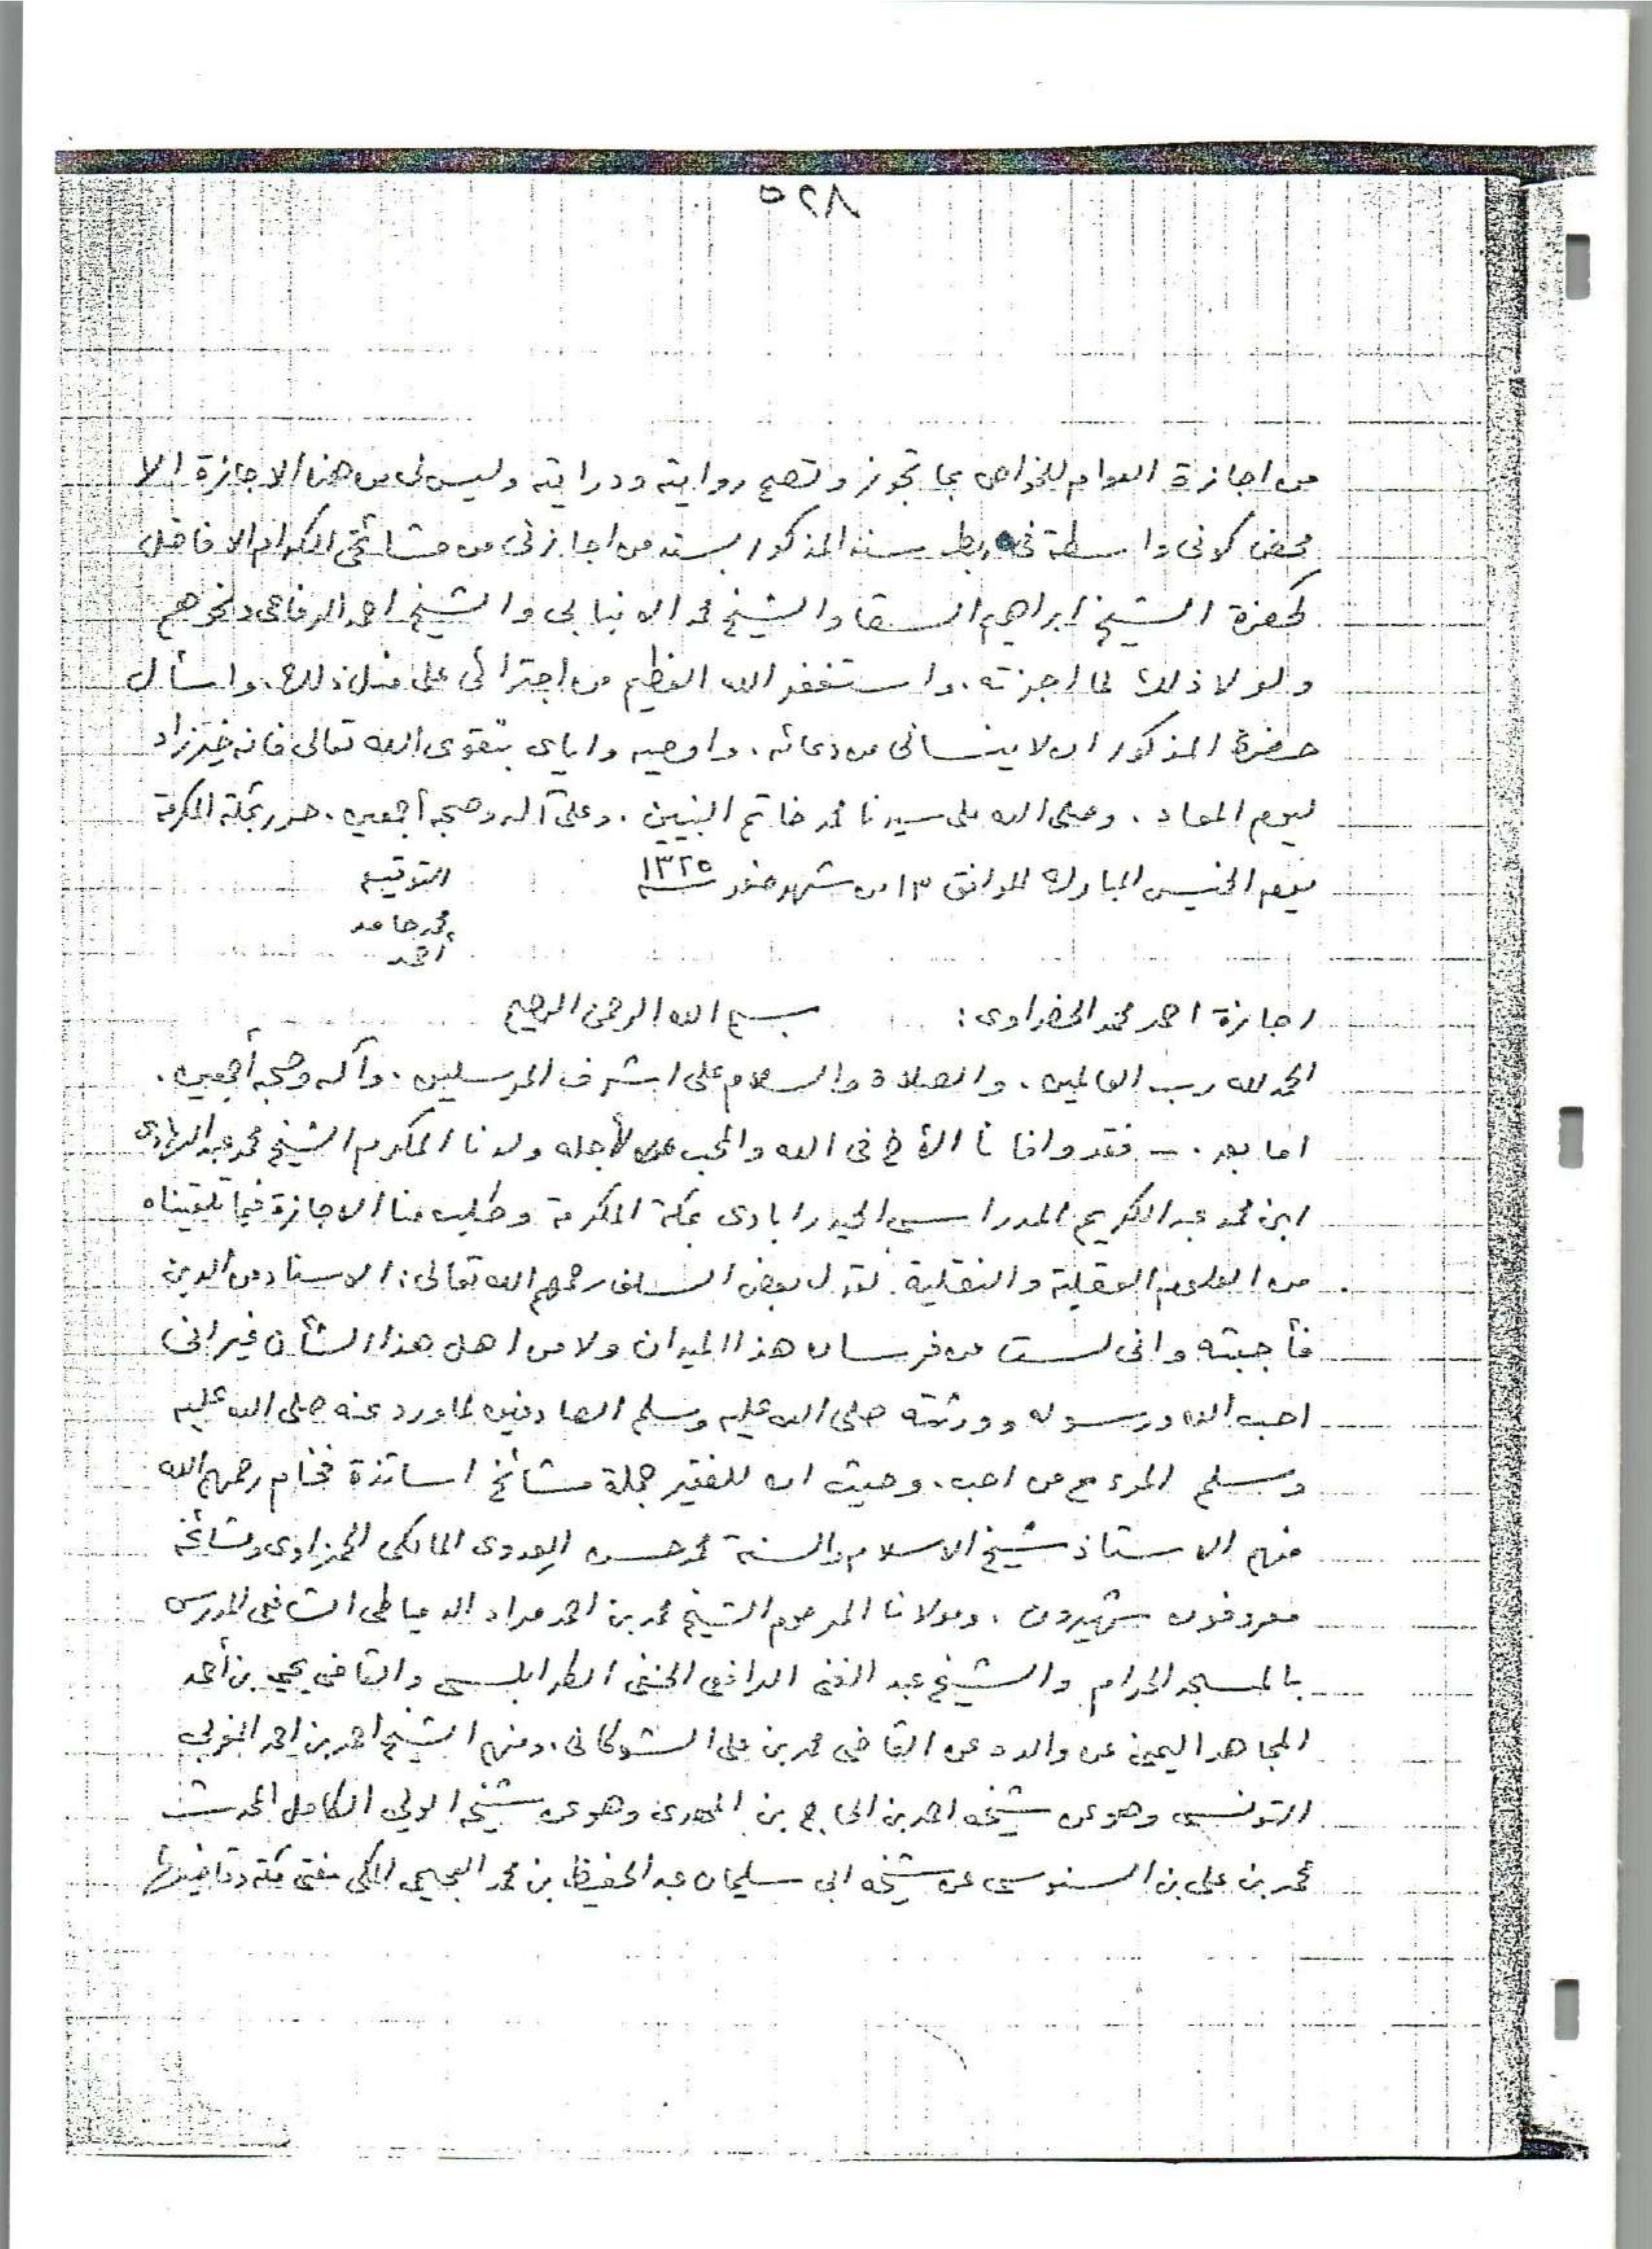 ٨٢٥
من اجازة العوام للخواص بما تجوز وتصح روايته ودرايته وليس لى من هذا الاجازة الا
محض كونى واسطة فى ربط سند المذكور بسند من اجازنى من مشائخى الكرام الافاضل
كحضرة الشيخ ابراهيم السقا والشيخ محمد الانبابى والشيخ احمد الرفاعى ونحوهم
ولولا ذلك لما اجزته. واستغفر الله العظيم من اجترائى على مثل ذلك. واسأل
حضرة المذكور ان لا ينسانى من دعائه. واوصيه واياى بتقوى الله تعالى فانه خير زاد
ليوم المعاد. وصلى الله على سيدنا محمد خاتم النبيين. وعلى آله وصحبه أجمعين. حرر بمكة المكرمة
يوم الخميس المبارك الموافق ١٣ من شهر صفر سنة ١٣٢٥ التوقيع
محمد حامد
أحمد
اجازة احمد محمد الحضراوى: بسم الله الرحمن الرحيم
الحمد لله رب العالمين. والصلاة والسلام على اشرف المرسلين. وآله وصحبه أجمعين.
اما بعد. – فقد وافانا الأخ فى الله والمحب لأجله ولدنا المكرم الشيخ محمد عبد الهادى
ابن محمد عبد الكريم المدراسى الحيدرابادى بمكة المكرمة وطلب منا الاجازة فيما تلقيناه
من العلوم العقلية والنقلية. لقول بعض السلف رحمهم الله تعالى: الاسناد من الدين
فأجبته وانى لست من فرسان هذا الميدان ولا من اهل هذا الشأن غير انى
احب الله ورسوله وورثته صلى الله عليه وسلم الصادقين لما ورد عنه صلى الله عليه
وسلم المرء مع من احب. وحيث ان للفقير جملة مشائخ اساتذة فخام رحمهم الله
فمنهم الاستاذ شيخ الاسلام والسنة محمد حسن العدوى المالكى الحمزاوى ومشائخه
معروفون شهيرون. ومولانا المرحوم الشيخ محمد بن احمد مراد الدمياطى الشافعى المدرس
بالمسجد الحرام والشيخ عبد الغنى الرافعى الحنفى الطرابلسى والقاضى يحيى بن أحمد
المجاهد اليمنى عن والده عن القاضى محمد بن على الشوكانى. ومنهم الشيخ احمد بن احمد المغربى
التونسى وهو عن شيخه احمد بن الحاج بن المهدى وهو عن شيخه الولى الكامل المحدث
محمد بن على بن السنوسى عن شيخه ابى سليمان عبد الحفيظ بن محمد العجيمى المكى مفتى مكة وقاضيها